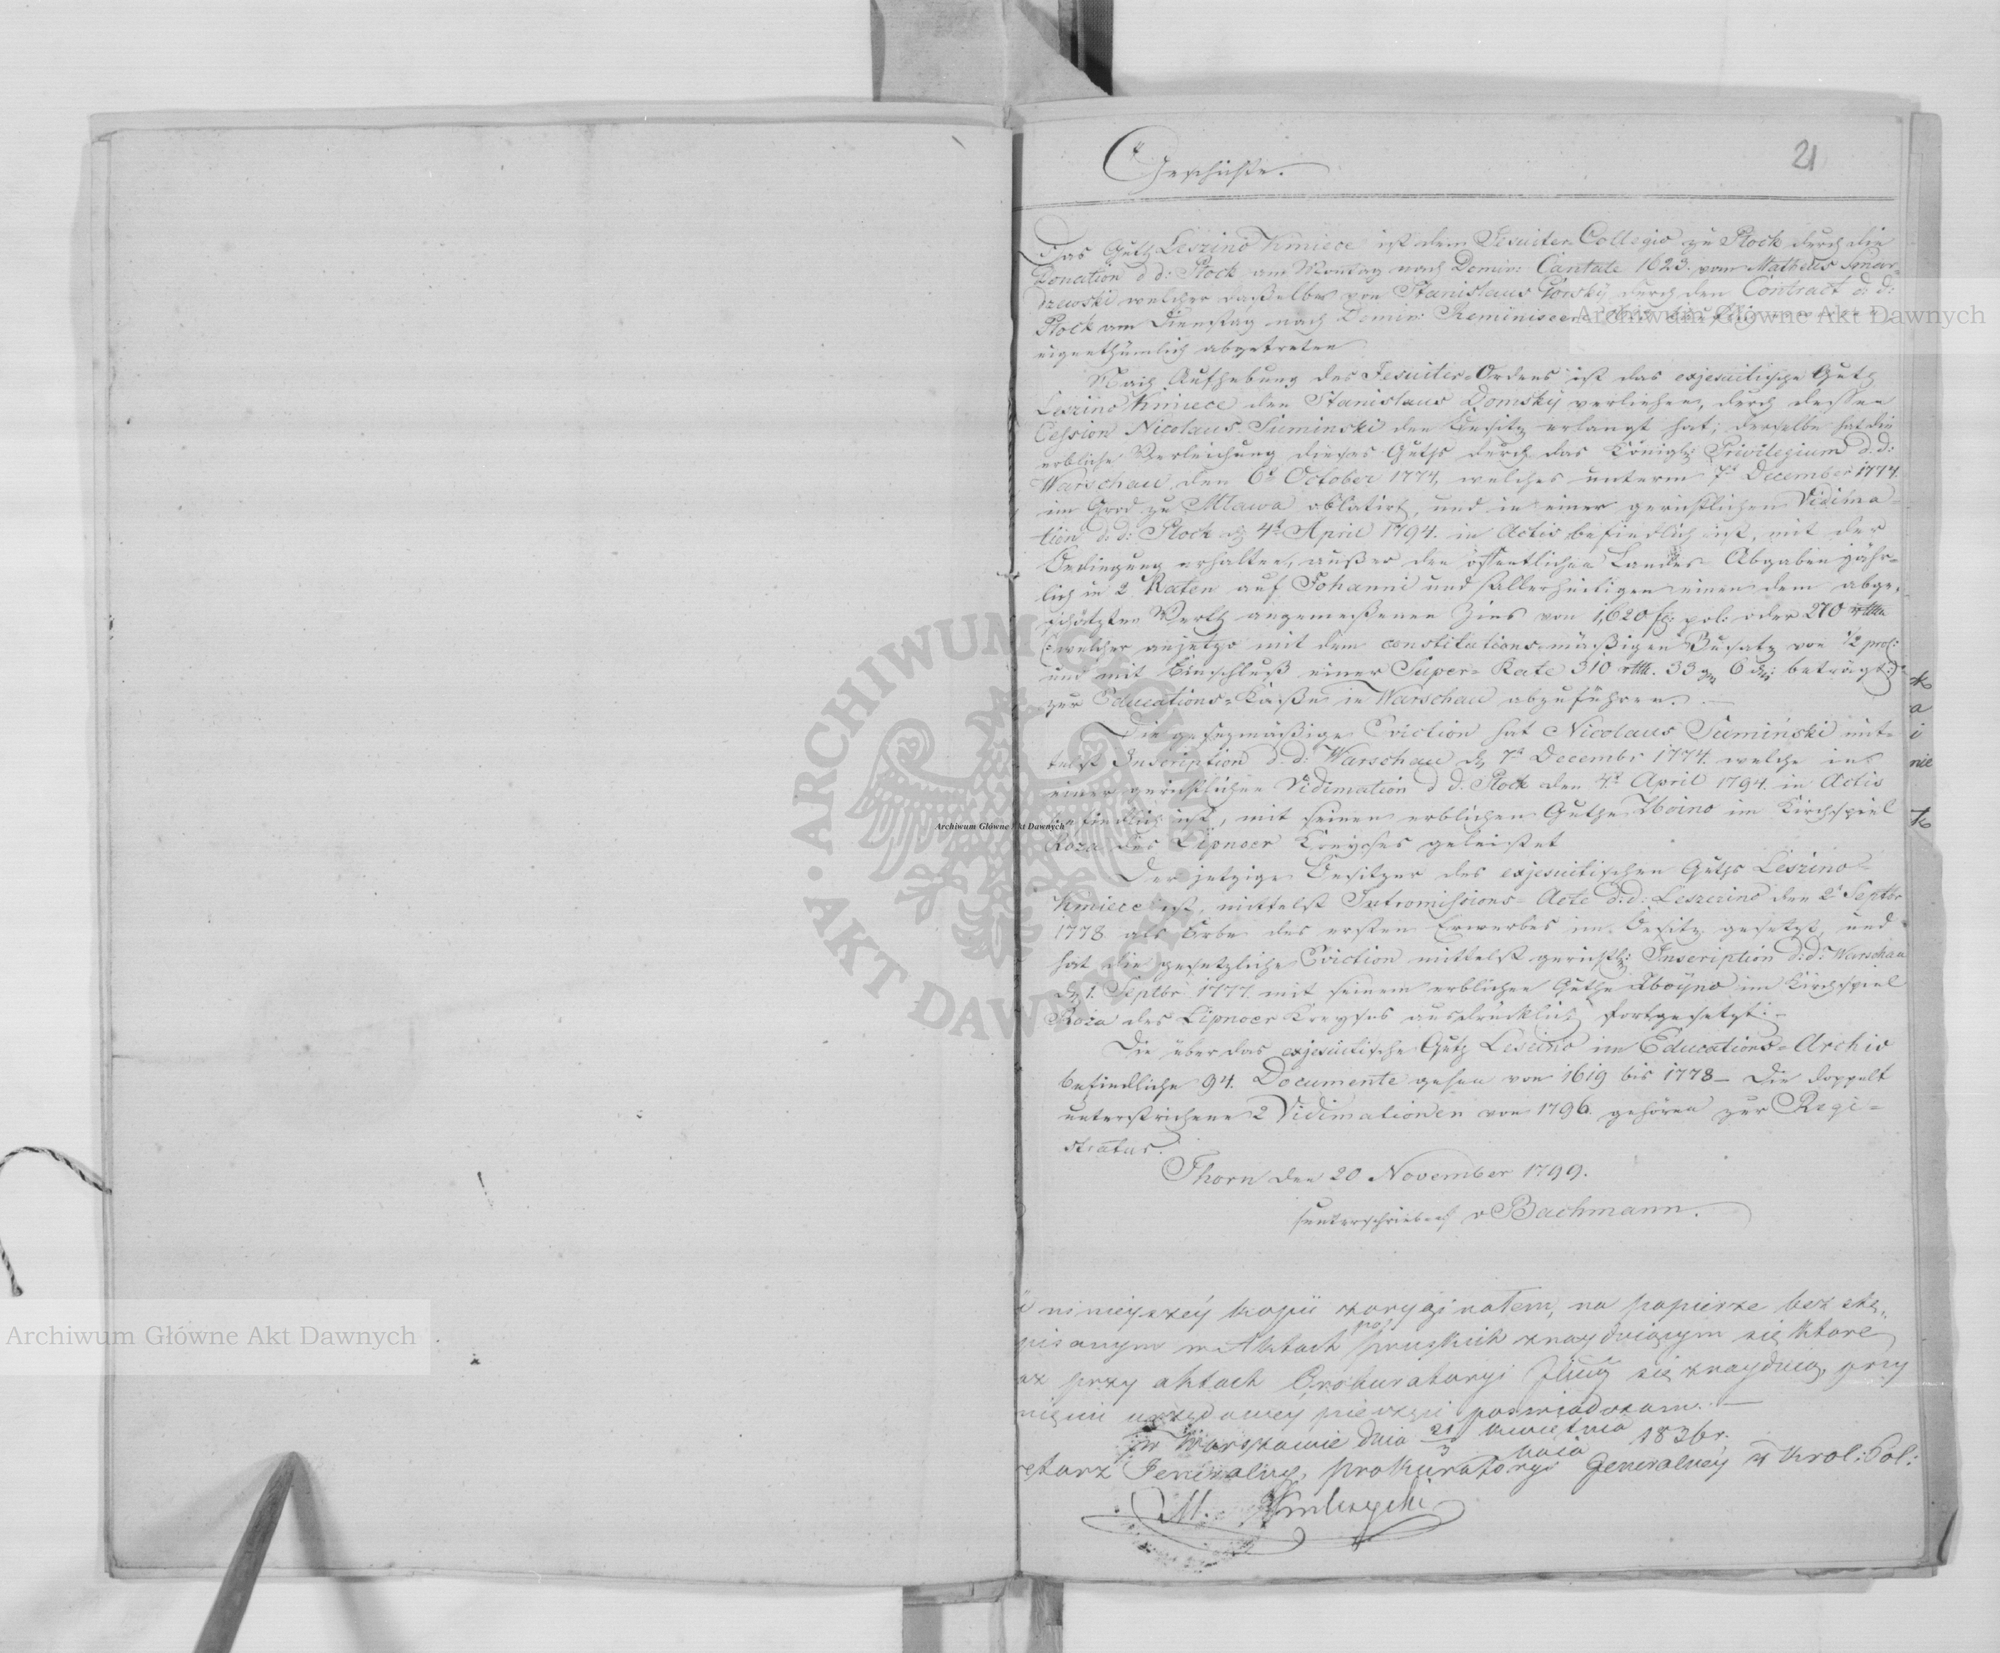 21
Geschichte.
Das Guth Leszino Kmiece ist dem Jesuiter Collegio zu Plock durch die
Donation d d: Plock am Montag nach Domin: Cantate 1623. vom Matheus
welcher dasselbe von Stanislaus Gorsky durch den Contract d. d:
Plock am Dienstag nach Domin: Reminiscere
eigenthümlich abgetreten
Nach Aufhebung des Jesuiter-Ordens ist das exjesuitische Guth
Leszino Kmiece den Stanislaus Domsky verliehen, durch dessen
Cession Nicolaus Suminski den Besitz erlangt hat; derselbe hat die
erbliche Verleihung dieses Guths durch das Königl: Privilegium d. d:
Warschau den 6t October 1774, welches unterm 7t December 1774.
im Grod zu Mlawa oblatirt, und in einer gerichtlichen Vidima-
tion d. d: Plock d 4t April 1794. in Actis befindlich ist, mit der
Bedingung erhalten, außer den öffentlichen Landes Abgaben jähr-
lich in 2 Raten auf Johanni und Allerheiligen einen dem abge-
schätzten Werth angemeßenen Zins von 1,620 fl: pol: oder 270 rthlr
(:welcher anjetzo mit dem constitutionsmäßigen Zusatz von
und mit Einschluß einer Super-Rate 310 rthlr. 33 gr 6 d: beträgt:)
zur Educations-Kaße in Warschau abzuführen. —
Die gesezmäßige Eviction hat Nicolaus Sumiński mit-
telst Inscription d. d: Warschau d 7t Decembr 1774. welche in
einer gerichtlichen Vidimation d d. Plock den 4t April 1794. in Actis
befindlich ist, mit seinem erblichen Guthe Zboino im Kirchspiel
Roza des Lipnoer Kreyses geleistet
Der jetzige Besitzer des exjesuitischen Guths Leszino-
Kmiece ist, mittelst Intromissions-Acte d. d: Leszcino den 2t Septbr
1778 als Erbe des ersten Erwerbes im Besitz gesetzt, und
hat die gesetzliche Eviction mittelst gerichtl: Inscription d: d: Warschau
d 1. Septbr 1777. mit seinem erblichen Guthe Zboyno im Kirchspiel
Roza des Lipnoer Kreyses ausdrücklich fortgesetzt: -
Die über das exjesuitische Guth Lescino im Educations-Archiv
befindliche 94. Documente gehen von 1619 bis 1778 — Die doppelt
unterstrichene 2 Vidimationen von 1796. gehören zur Regi-
stratur.
Thorn den 20 November 1799.
unterschrieben v Bachmann.
niniejszéy kopii z oryginałem, na papierze bez stę-
pisanym w Aktach po pruskich znayduiącym się które
przy aktach Prokuratoryi się znayduią, przy
urzędowey pieczęci poświadczam. —
w Warszawie dnia 21/3 kwietnia/maia 1836 r.
Jeneralny, Prokuratoryi Generalnéy w Krol: Pol:
M.
Archiwum Główne Akt Dawnych
Archiwum Główne Akt Dawnych
Archiwum Główne Akt Dawnych
ARCHIWUM GŁÓWNE
AKT DAWNYCH